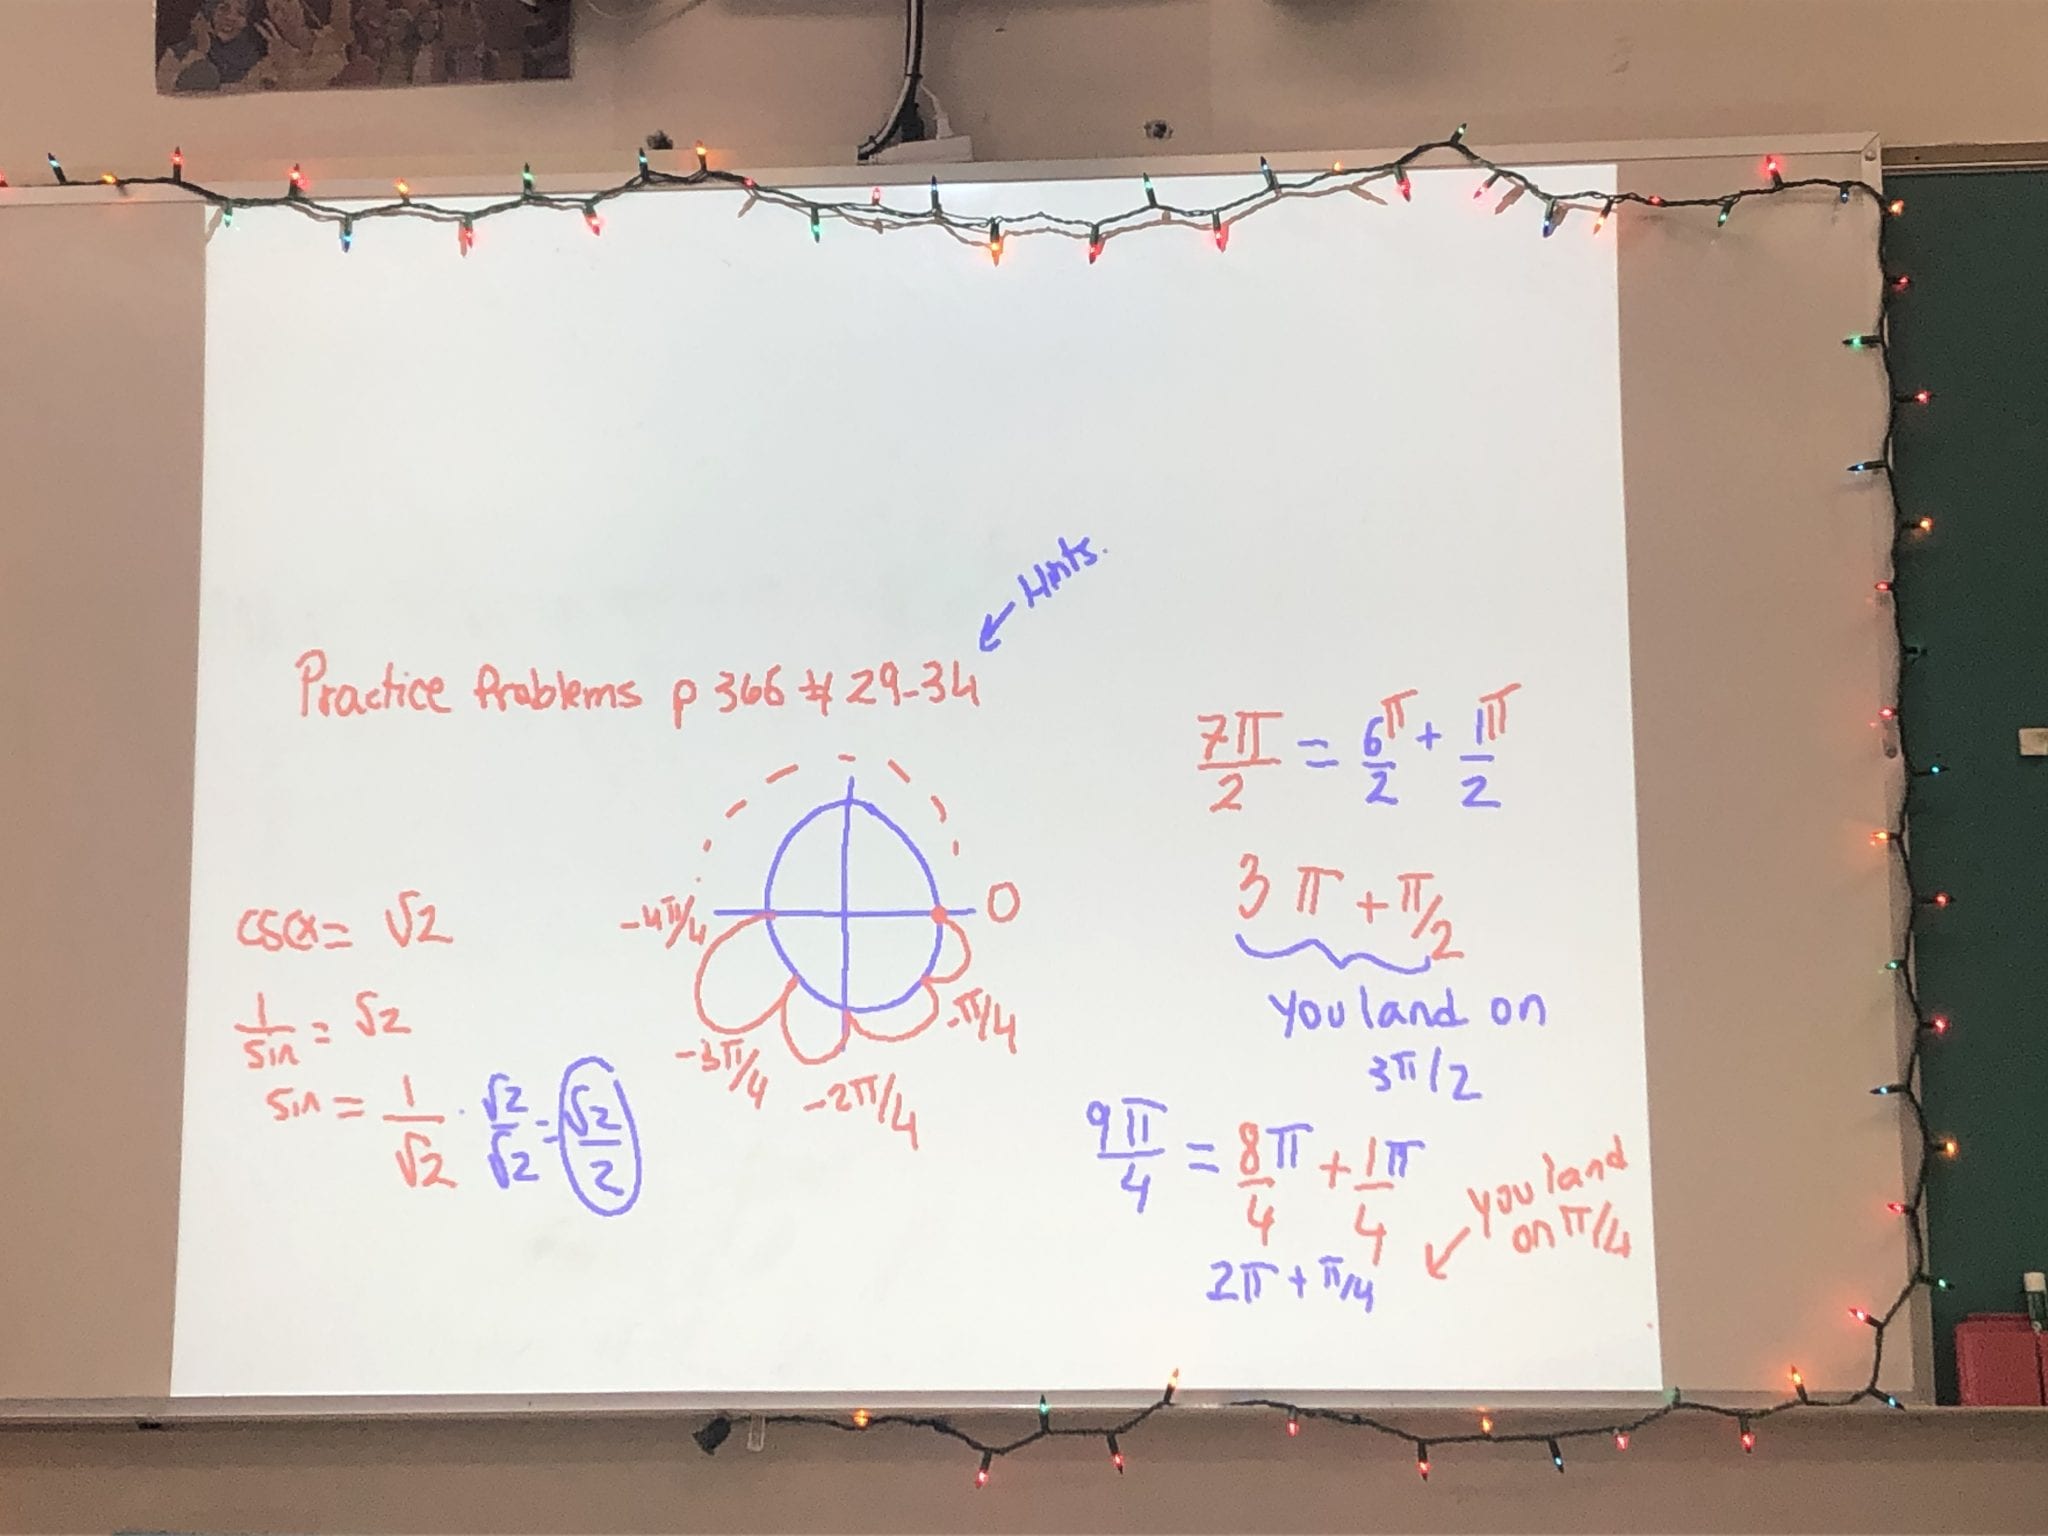 Hints.
Practice Problems p 366 # 29-34
cscx = √2
1/sin = √2
sin = 1/√2 · √2/√2 = √2/2
0
-π/4
-2π/4
-3π/4
-4π/4
7π/2 = 6π/2 + 1π/2
3π + π/2
you land on
3π/2
9π/4 = 8π/4 + 1π/4
2π + π/4
you land
on π/4